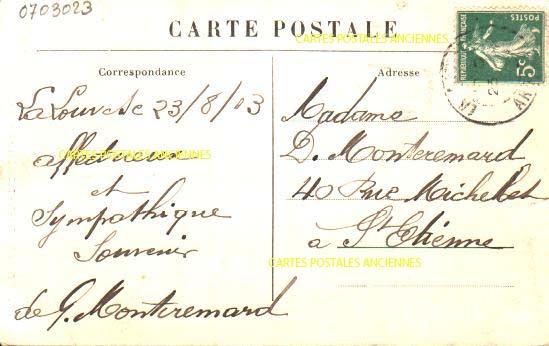 0703023
CARTE POSTALE
CARTES POSTALES ANCIENNES
POSTES
REPUBLIQUE FRANÇAISE
5c
Correspondance
Adresse
La Louvesc 23/8/13
affectueux
CARTES POSTALES ANCIENNES
et
Sympathique
Souvenir
de G. Monteremard
Madame
D. Monteremard
40 Rue Michelet
à St Etienne
CARTES POSTALES ANCIENNES